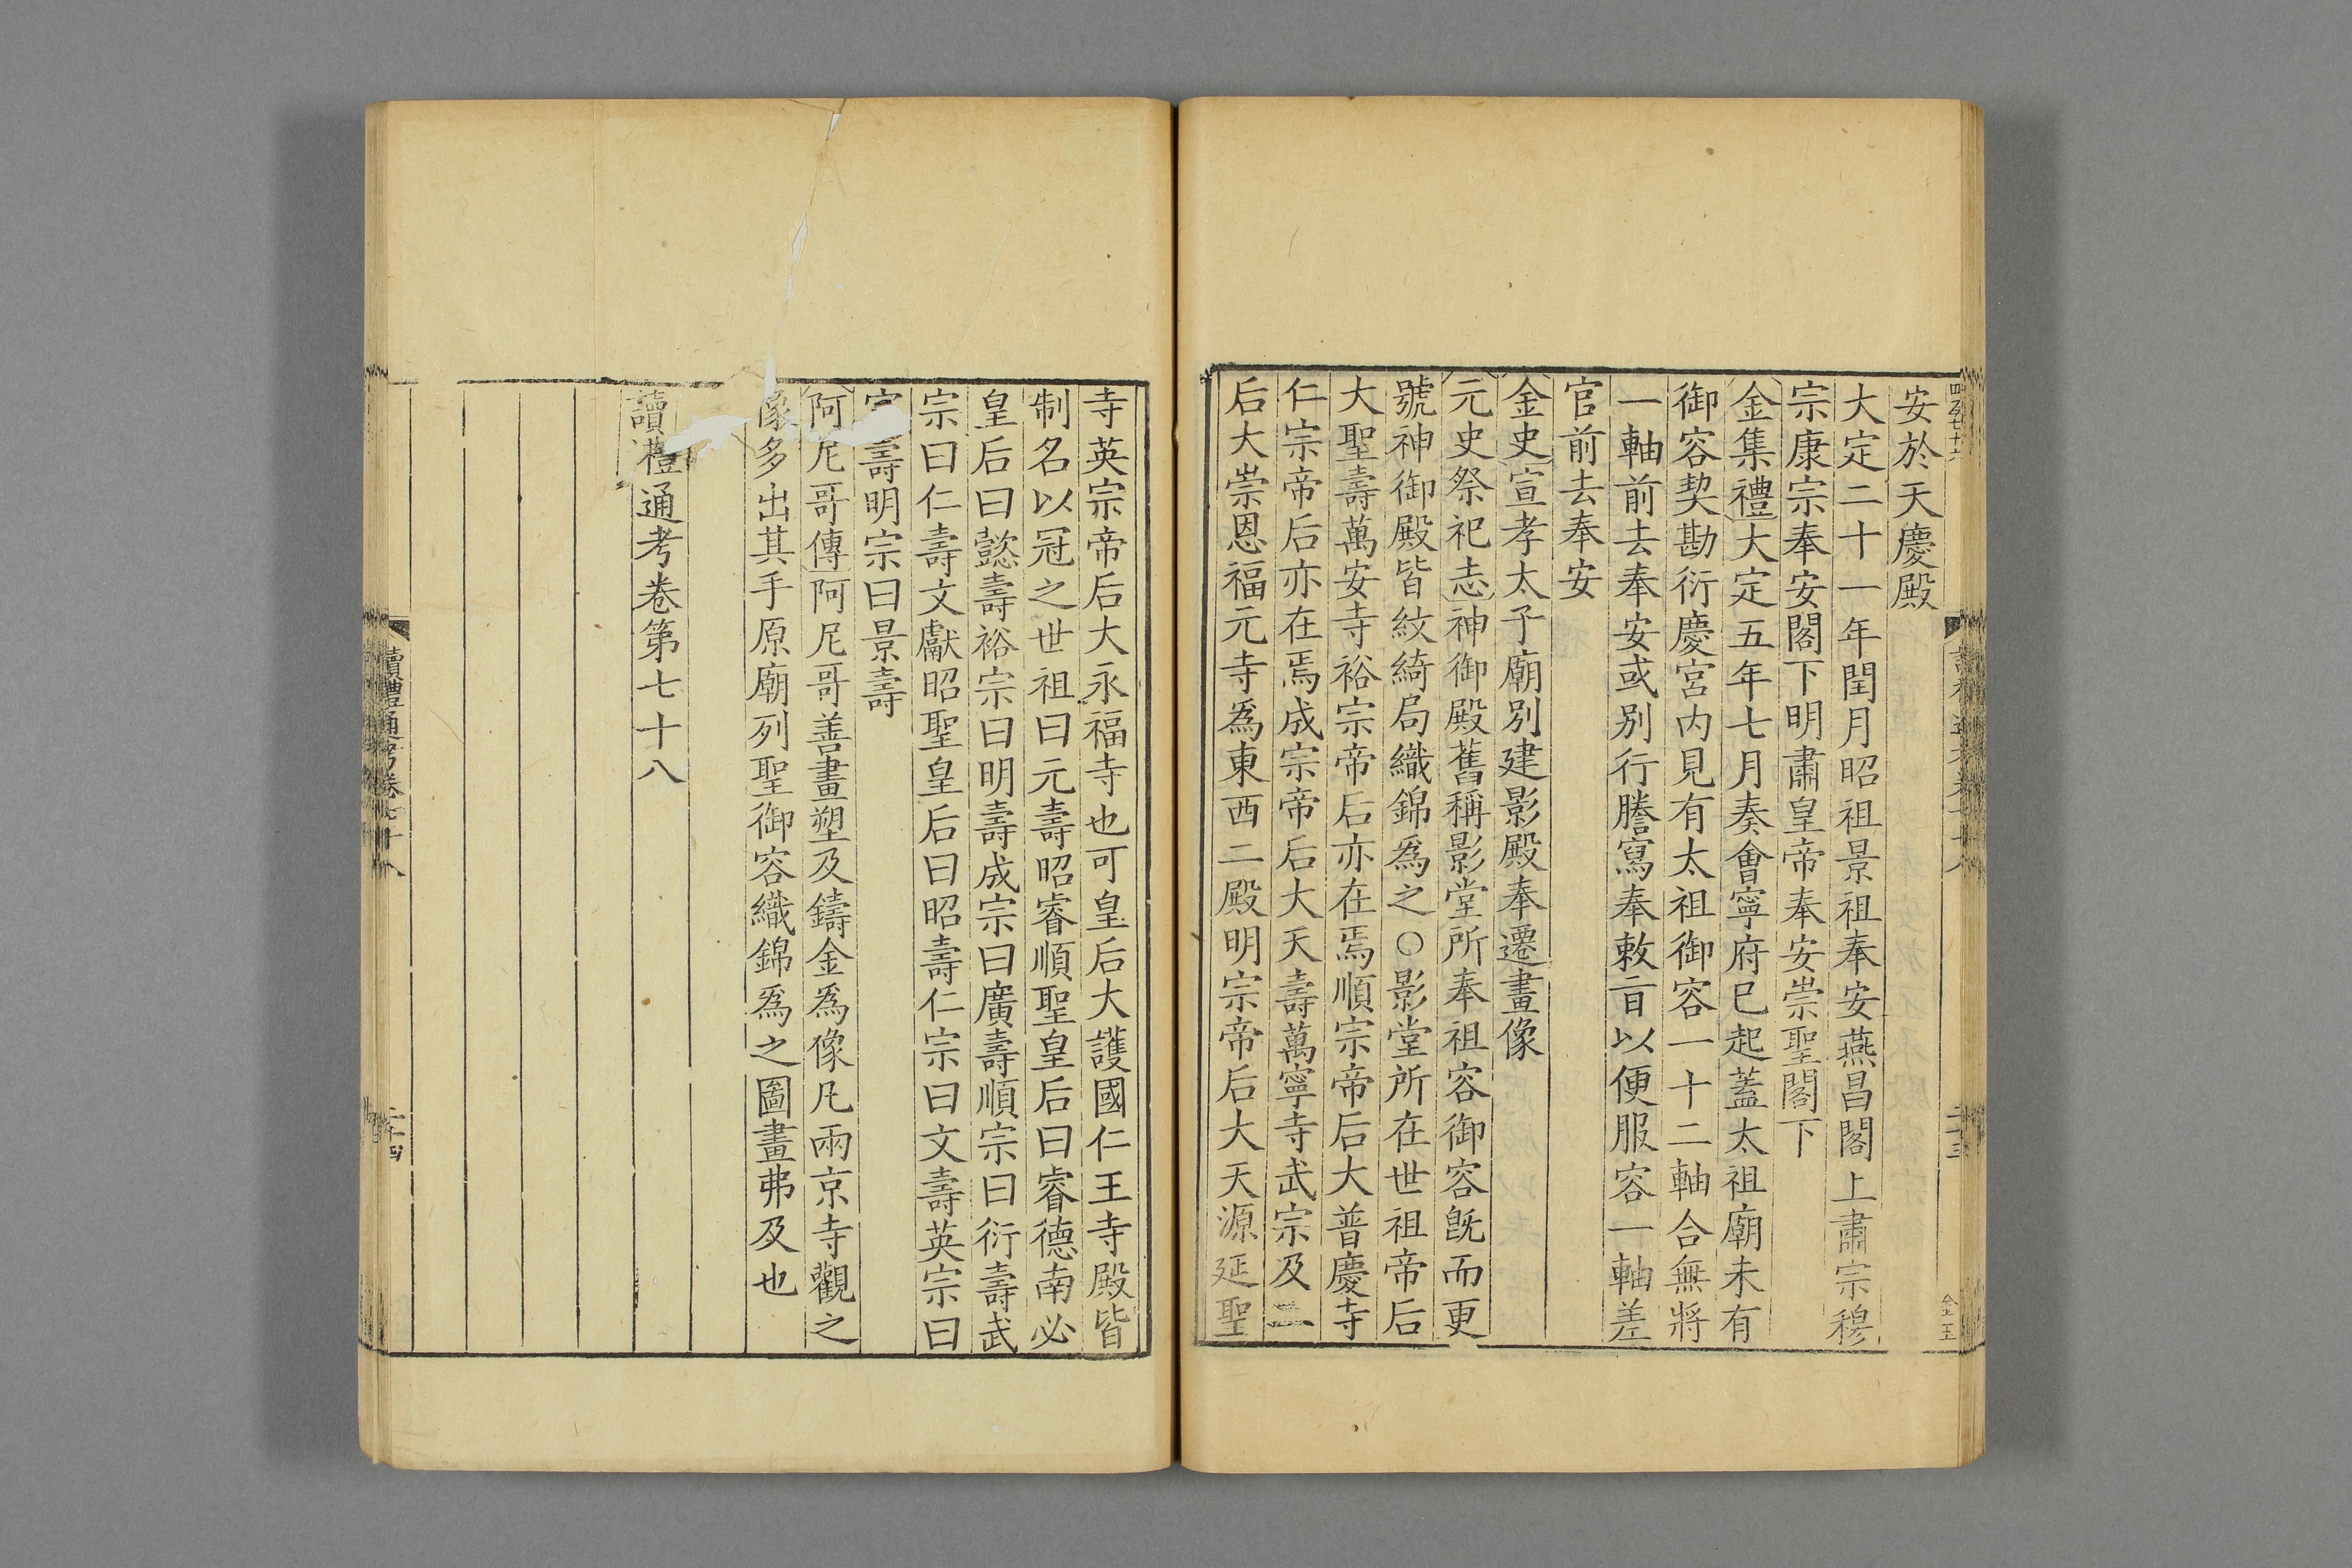 安於天慶殿
大定二十一年閏月昭祖景祖奉安燕昌閣上肅宗穆
宗康宗奉安閣下明肅皇帝奉安崇聖閣下
金集禮大定五年七月奏會寧府已起蓋太祖廟未有
御容契勘衍慶宮內見有太祖御容一十二軸合無將
一軸前去奉安或別行謄寫奉敕旨以便服容一軸差
官前去奉安
金史宣孝太子廟別建影殿奉遷畫像
元史祭祀志神御殿舊稱影堂所奉祖容御容旣而更
號神御殿皆紋綺局織錦爲之○影堂所在世祖帝后
大聖壽萬安寺裕宗帝后亦在焉順宗帝后大普慶寺
仁宗帝后亦在焉成宗帝后大天壽萬寧寺武宗及二
后大崇恩福元寺爲東西二殿明宗帝后大天源延聖
寺英宗帝后大永福寺也可皇后大護國仁王寺殿皆
制名以冠之世祖曰元壽昭睿順聖皇后曰睿德南必
皇后曰懿壽裕宗曰明壽成宗曰廣壽順宗曰衍壽武
宗曰仁壽文獻昭聖皇后曰昭壽仁宗曰文壽英宗曰
宣壽明宗曰景壽
阿尼哥傳阿尼哥善畫塑及鑄金爲像凡兩京寺觀之
像多出其手原廟列聖御容織錦爲之圖畫弗及也
讀禮通考卷第七十八
讀禮通考卷七十八
二十四